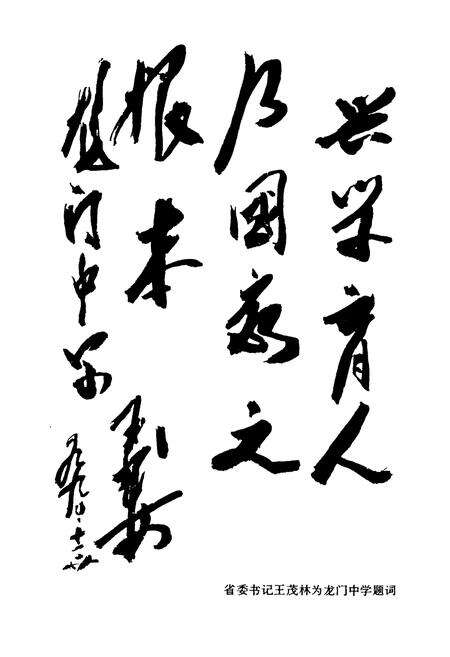 兴学育人
乃國家之
根本
龙门中学
省委书记王茂林为龙门中学题词